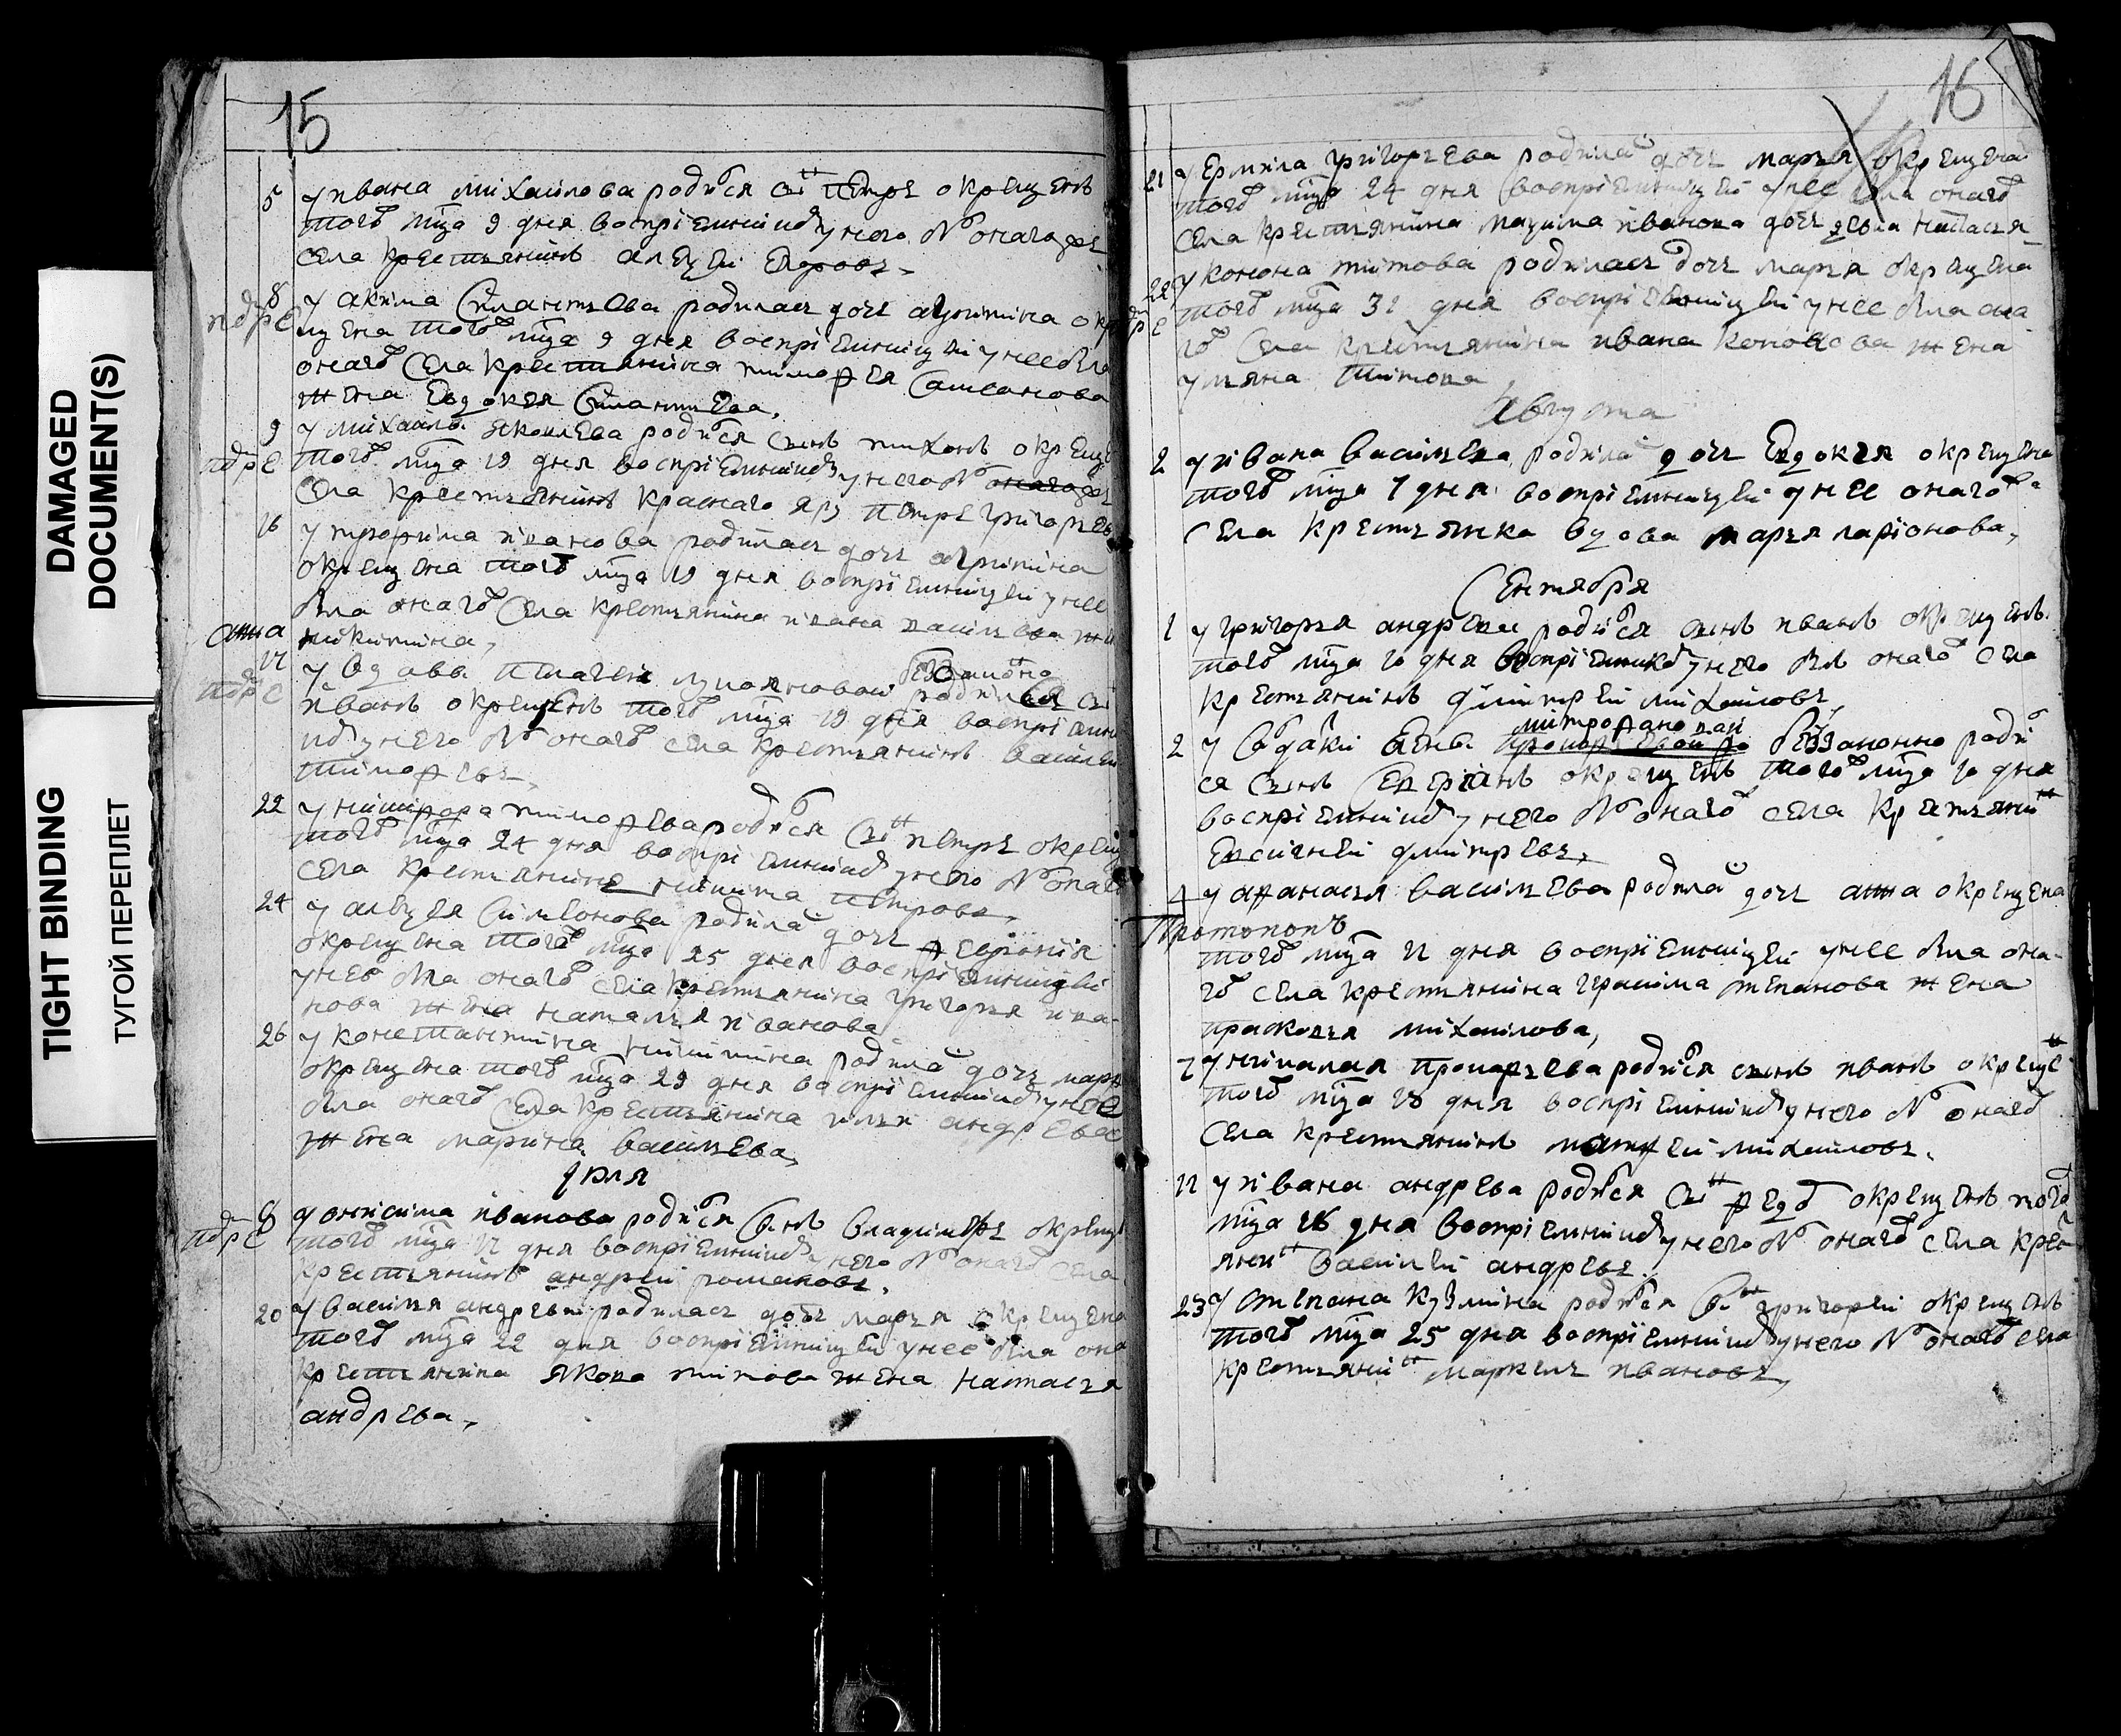 DAMAGED
DOCUMENT(S)
TIGHT BINDING
ТУГОЙ ПЕРЕПЛЕТ
15
5 у ивана михаилова родися сынъ петръ окрещенъ
того мца 9 дня восприемникъ у него был онагожъ
села крестьянинъ алеѯеи егоровъ
8 у акима силантьева родилась дочь агрипина окре
щена того мца 9 дня восприемницеи у нее была
онаго села крестьянина тимофея
жена евдокея силантьева
9 у михаила яковлева родися сынъ тихонъ окрещ
того мца 19 дня восприемникъ у него был онагожъ
села крестьянинъ краснаго яру петръ григорьев
16 у трофима иванова родилась дочь агрипина
окрещена того мца 19 дня восприемницеи у нее
была онаго села крестьянина ивана васильева же
анна никитина
17 у вдовы пелагеи лукояновои беззаконно родился
иванъ окрещенъ того мца 19 дня восприемни
икъ у него был онаго села крестьянинъ василеи
тимофеевъ
22 у никифора тимофеева родися сынъ петръ окрещ
того мца 24 дня восприемникъ у него был онаго
села крестьянинъ никита петровъ
24 у алеѯея симеонова родилась дочь феврониа
окрещена того мца 25 дня восприемницеи
у нее была онаго села крестьянина григорья ива
нова жена наталья иванова
26 у константина никитина родилась дочь марф
окрещена того мца 29 дня восприемникъ у нее
была онаго села крестьянина ильи андреева
жена марина васильева
Июля
8 у онисима иванова родися сынъ владимеръ окрещ
того мца 12 дня восприемникъ у него был онаго села
крестьянинъ андреи романовъ
20 у василья андреева родилась дочь марья окрещена
того мца 22 дня восприемницеи у нее была она
крестьянина якова титова жена настасья
андреева
16
21 у ермила григорьева родилась дочь марья окрещена
того мца 24 дня восприемницеи у нее была онаго
села крестьянина маѯима иванова дочь девка настасья
22 у конона титова родилась дочь марья окрещена
того мца 31 дня восприемницеи у нее была она
го села крестьянина ивана кононова жена
ульяна титова
Августа
2 у ивана васильева родилась дочь евдокея окрещена
того мца 7 дня восприемницеи у нее онаго
села крестьянка вдова марья ларионова
Сентября
1 у григорья андреева родися сынъ иванъ окрещенъ
того мца 10 дня восприемникъ у него был онаго села
крестьянинъ димитреи михаиловъ
митрофановаи
2 у беззаконно роди
ся сынъ окрещенъ того мца 10 дня
восприемникъ у него был онаго села крестьянинъ
евсигнеи дмитревъ
4 у афанасья васильева родилась дочь анна окрещена
Протопопъ
того мца 11 дня восприемницеи у нее была она
го села крестьянина герасима степанова жена
прасковья михаилова
7 у николая прокофьева родися сынъ иванъ окрещенъ
того мца 18 дня восприемникъ у него был онаго
села крестьянинъ матфеи михаиловъ
11 у ивана андреева родися сынъ федор окрещенъ того
мца 16 дня восприемникъ у него был онаго села крес
янинъ василеи андреевъ
23 у степана кузмина родися сынъ григореи окрещенъ
того мца 25 дня восприемникъ у него был онаго села
крестьянинъ маркелъ ивановъ